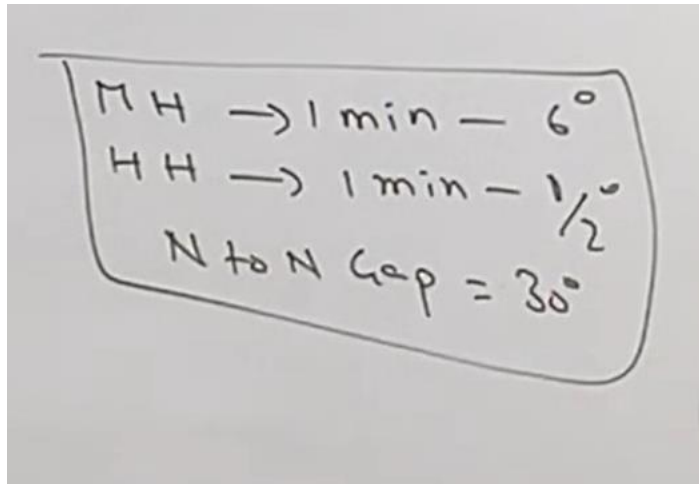 MH → 1 min – 6°
HH → 1 min – 1/2°
N to N Gap = 30°